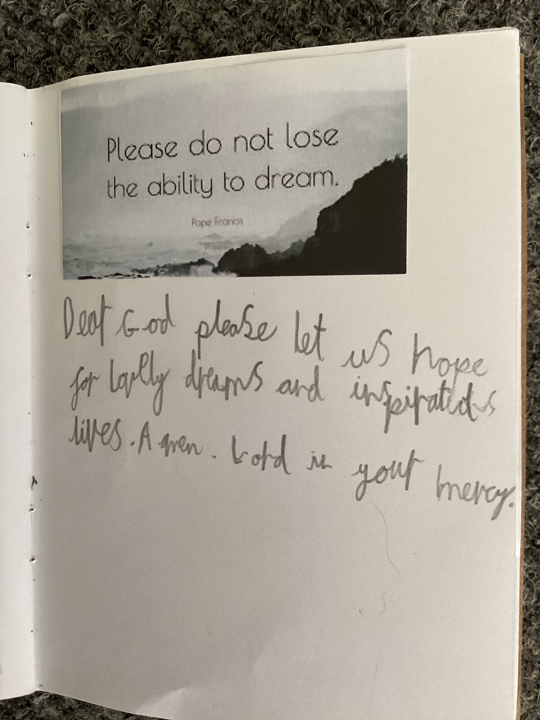 Please do not lose
the ability to dream.
Pope Francis
Dear God please let us hope
for lovely dreams and inspirateds
lives. Amen. Lord in your mercy.